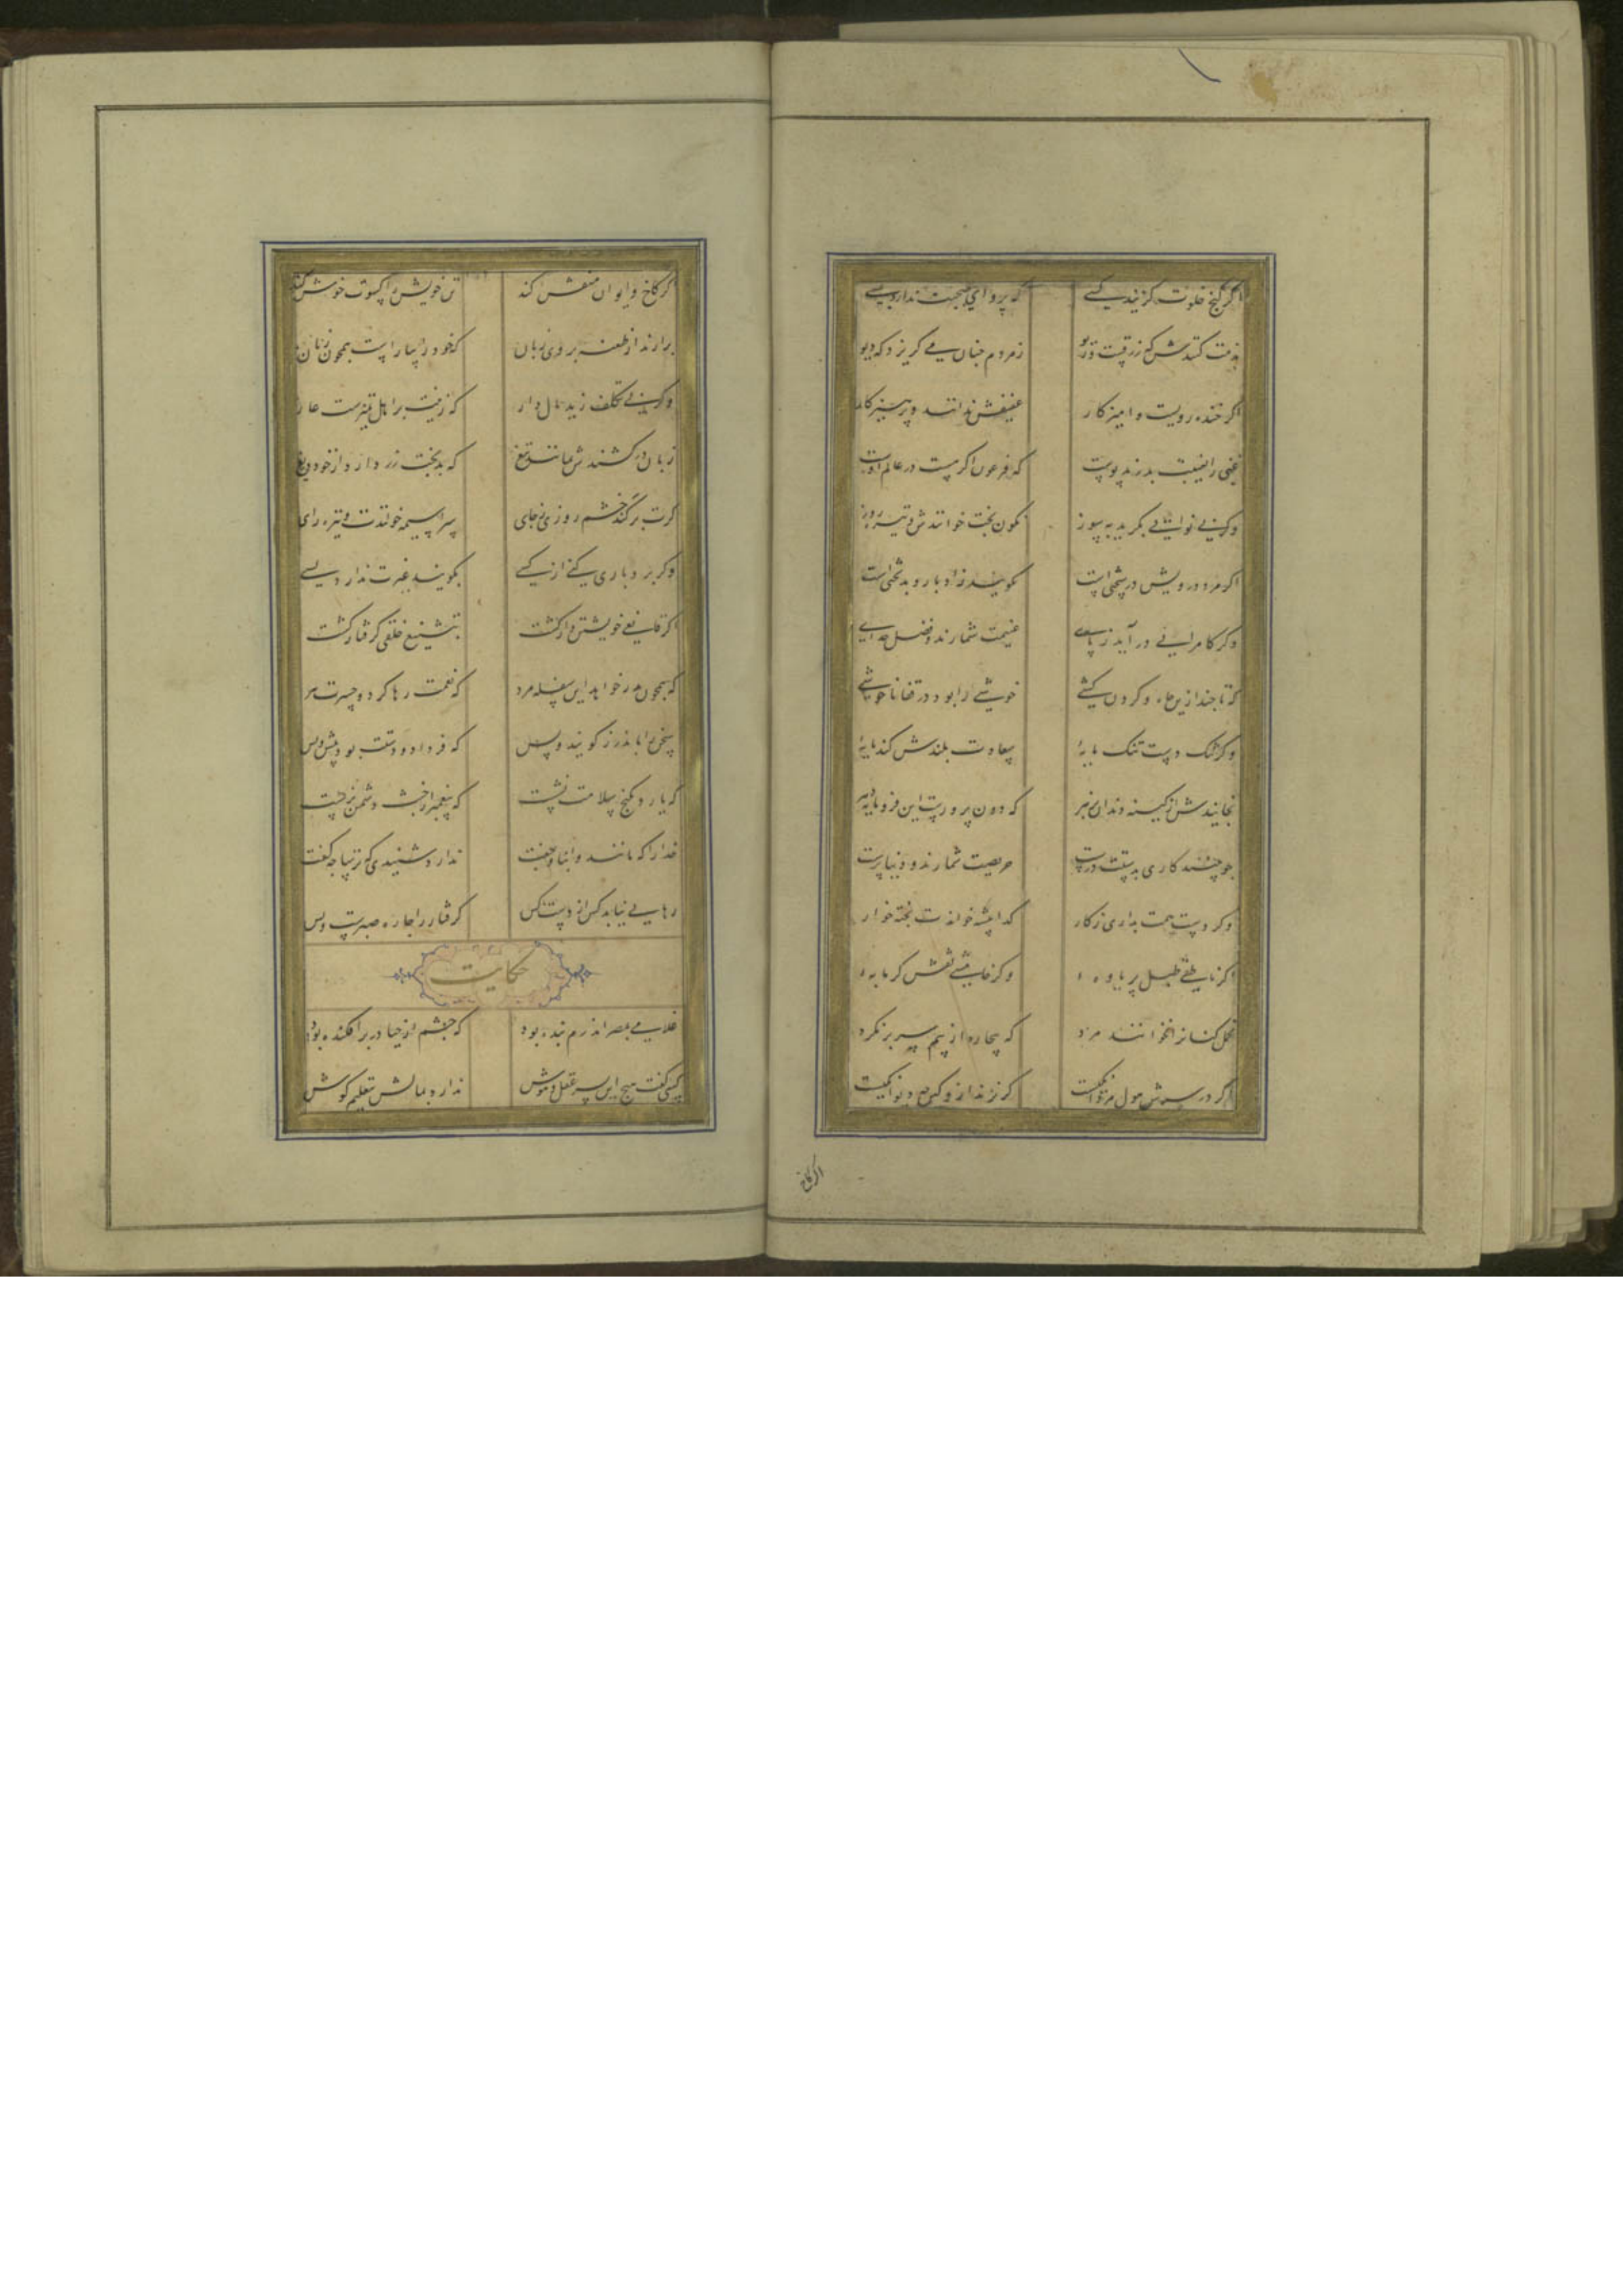 اگر کنج خلوت گزیند کسی که پروای صحبت ندارد بسی
مذمت کنندش که زرقست و ریو ز مردم چنان می گریزد که دیو
اگر خنده رویست و آمیزکار عفیفش ندانند و پرهیزکار
غنی را بغیبت بدرند پوست که فرعون اگر هست در عالم اوست
وگر بی نوایی بگرید بسوز نگون بخت خوانندش و تیره روز
اگر مرد درویش در سختی است بگویند از ادبار و بدبختی است
وگر کامرانی در آید ز پای غنیمت شمارند و فضل خدای
که تا چند ازین جاه و گردن کشی خوشی را بود در قفا ناخوشی
وگر تنک دستی تنک مایهٔ سعادت بلندش کند پایهٔ
بخایندش از کینه دندان بزهر که دون پرورست این فرومایه دهر
چو بینند کاری بدستت درست حریصت شمارند و دنیاپرست
وگر دست همت بداری ز کار گداپیشه خوانندت و پخته خوار
اگر ناطقی طبل پر یاوهٔ وگر خامشی نقش گرمابهٔ
تحمل کنان را نخوانند مرد که بیچاره از بیم سر بر نکرد
اگر در سرش هول مردانگیست گریزند ازو کین چه دیوانگیست
اگر کاخ
اگر کاخ و ایوان منقش کند تن خویش را کسوت خوش کند
برآرند از طعنه بر وی زبان که خود را بیاراست همچون زنان
وگر بی تکلف زید مال دار که زینت بر اهل تمیزست عار
زبان در کشندش بمانند تیغ که بدبخت زر دارد از خود دریغ
گرت برکند خشم روزی ز جای سراسیمه خوانندت و تیره رای
وگر بردباری کنی از کسی بگویند غیرت ندارد بسی
اگر قانع خویشتن دار گشت بتشنیع خلقی گرفتار گشت
که همچون پدر خواهد این سفله مرد که نعمت رها کرد و حسرت ببرد
سخی را باندرز گویند بس که فردا دو دستت بود پیش و پس
که یارد بکنج سلامت نشست که پیغمبر از خبث دشمن نرست
خدا را که مانند و انباز و جفت ندارد شنیدی که ترسا چه گفت
رهایی نیابد کس از دست کس گرفتار را چاره صبرست و بس
حکایت
غلامی بمصر اندرم بنده بود که چشم از حیا در بر افکنده بود
کسی گفت هیچ این پسر عقل و هوش ندارد بمالش بتعلیم گوش